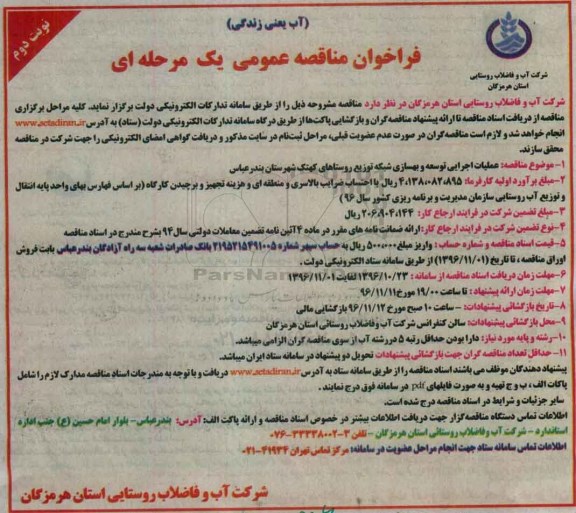 (آب یعنی زندگی)
نوبت دوم
فراخوان مناقصه عمومی یک مرحله ای
شرکت آب و فاضلاب روستایی
استان هرمزگان
شرکت آب و فاضلاب روستایی استان هرمزگان در نظر دارد مناقصه مشروحه ذیل را از طریق سامانه تدارکات الکترونیکی دولت برگزار نماید. کلیه مراحل برگزاری
مناقصه از دریافت اسناد مناقصه تا ارائه پیشنهاد مناقصه گران و بازگشایی پاکت ها از طریق درگاه سامانه تدارکات الکترونیکی دولت (ستاد) به آدرس www.setadiran.ir
انجام خواهد شد و لازم است مناقصه گران در صورت عدم عضویت قبلی، مراحل ثبت نام در سایت مذکور و دریافت گواهی امضای الکترونیکی را جهت شرکت در مناقصه
محقق سازند.
۱- موضوع مناقصه: عملیات اجرایی توسعه و بهسازی شبکه توزیع روستاهای کهتک شهرستان بندرعباس
۲- مبلغ برآورد اولیه کارفرما: ۴،۱۳۸،۰۸۲،۸۹۵ ریال با احتساب ضرایب بالاسری و منطقه ای و هزینه تجهیز و برچیدن کارگاه (بر اساس فهارس بهای واحد پایه انتقال
و توزیع آب روستایی سازمان مدیریت و برنامه ریزی کشور سال ۹۶)
۳- مبلغ تضمین شرکت در فرایند ارجاع کار: ۲۰۶،۹۰۴،۱۴۴ ریال
۴- نوع تضمین شرکت در فرایند ارجاع کار: ارائه ضمانت نامه های مقرر در ماده ۴ آئین نامه تضمین معاملات دولتی سال ۹۴ بشرح مندرج در اسناد مناقصه
۵- قیمت اسناد مناقصه و شماره حساب: واریز مبلغ ۵۰۰،۰۰۰ ریال به حساب سپهر شماره ۲۱۹۵۲۱۵۴۹۱۰۰۵ بانک صادرات شعبه سه راه آزادگان بندرعباس بابت فروش
اوراق مناقصه، تا تاریخ (۱۳۹۶/۱۱/۰۱) از طریق سامانه ستاد الکترونیکی دولت.
۶- مهلت زمان دریافت اسناد مناقصه از سامانه: ۱۳۹۶/۱۰/۲۳ لغایت ۱۳۹۶/۱۱/۰۱
۷- مهلت زمان ارائه پیشنهاد: تا ساعت ۱۹/۰۰ مورخ ۹۶/۱۱/۱۱
۸- تاریخ بازگشائی پیشنهادات: - ساعت ۱۰ صبح مورخ ۹۶/۱۱/۱۲ بازگشایی مالی
۹- محل بازگشائی پیشنهادات: سالن کنفرانس شرکت آب وفاضلاب روستائی استان هرمزگان
۱۰- رشته و پایه مورد نیاز: دارا بودن حداقل رتبه ۵ در رشته آب از سوی مناقصه گران الزامی میباشد.
۱۱- حداقل تعداد مناقصه گران جهت بازگشائی پیشنهادات تحویل دو پیشنهاد در سامانه ستاد ایران میباشد.
پیشنهاد دهندگان موظف می باشند اسناد مناقصه را از طریق سامانه ستاد به آدرس www.setadiran.ir دریافت و با توجه به مندرجات اسناد مناقصه مدارک لازم را شامل
پاکات الف، ب و ج تهیه و به صورت فایلهای pdf در سامانه فوق درج نمایند.
سایر جزئیات و شرایط در اسناد مناقصه درج شده است.
اطلاعات تماس دستگاه مناقصه گزار جهت دریافت اطلاعات بیشتر در خصوص اسناد مناقصه و ارائه پاکت الف: آدرس: بندرعباس- بلوار امام حسین (ع) جنب اداره
استاندارد - شرکت آب وفاضلاب روستائی استان هرمزگان - تلفن ۳-۳۳۳۳۸۰۰۲-۰۷۶
اطلاعات تماس سامانه ستاد جهت انجام مراحل عضویت در سامانه: مرکز تماس تهران ۴۱۹۳۴-۰۲۱
شرکت آب و فاضلاب روستایی استان هرمزگان